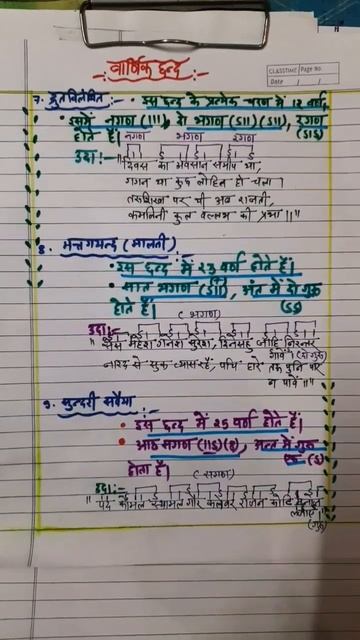 वार्णिक छन्द
CLASSTIME Page No.
Date / /
7. द्रुतविलंबित :- • इस छन्द के प्रत्येक चरण में 12 वर्ण,
इसमें नगण (111), दो भगण (S11)(S11), रगण
होते हैं। (S1S)
नगण भगण रगण
उदा:- "दिवस का अवसान समीप था,
गगन था कुछ लोहित हो चला।
तरुशिखा पर थी अब राजती,
कमलिनी कुल वल्लभ की प्रभा॥"
8. मत्तगयन्द (मालती)
• इस छन्द में 23 वर्ण होते हैं।
• सात भगण (S11), अंत में दो गुरु
होते हैं। (SS)
(भगण)
उदा:-
"सेस महेश गनेश सुरेश, दिनेसहु जाहि निरन्तर
गावैं। (दो गुरु)
नारद से सुक व्यास रहैं, पचि हारे तऊ पुनि पार
न पावैं॥"
9. सुन्दरी सवैया
• इस छन्द में 25 वर्ण होते हैं।
• आठ सगण (11S)(8), अन्त में गुरु
होता है। (S)
(सगण)
उदा:-
"पद कोमल स्यामल गौर कलेवर राजन कोटि मनोज
लजाए"
(गुरु)